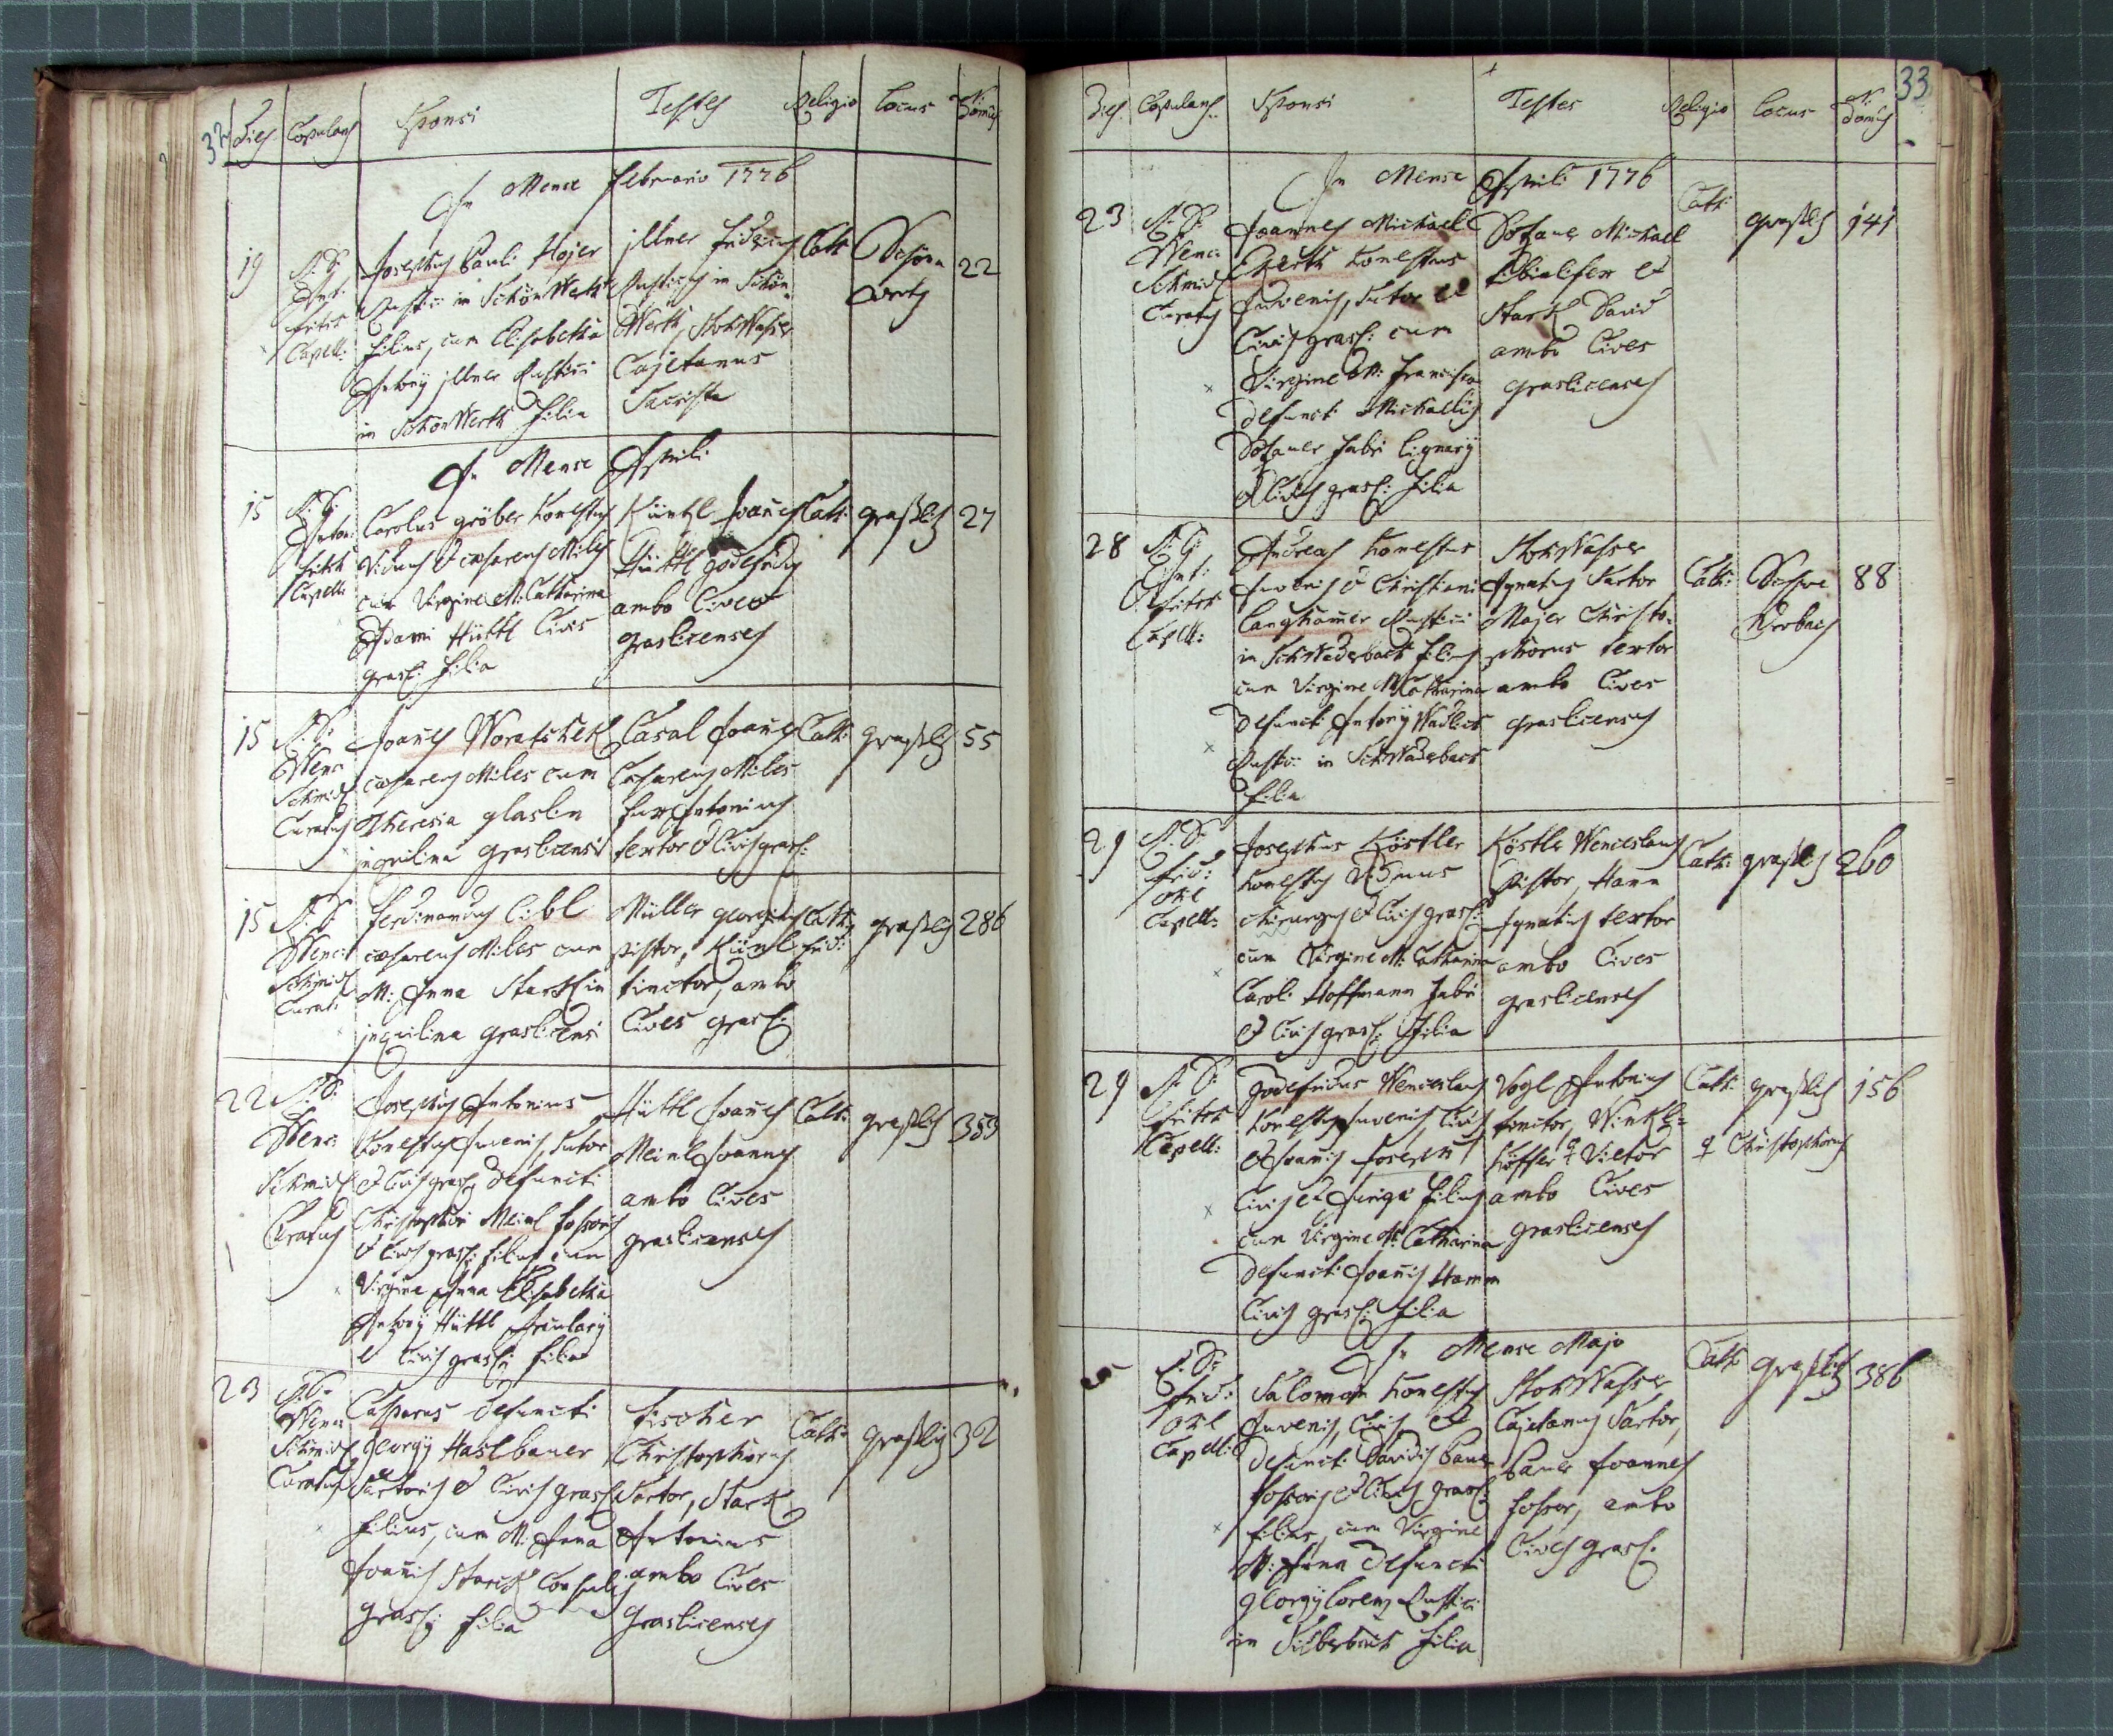 32
Dies Copulans Sponsi Testes Religio Locus N: Domus
In Mense Februario 1776
19 Josephus Pauli Hojer
Rustici in SchönWerth
filius, cum Elisabetha
Antonij illner Rustici
in SchönWerth filia
illner
Rusticus in Schön-
Werth, StokWasser
Cajetanus
Sacrista
Cath:
Schön
Werth
22
In Mense Aprili
15
R: D:
Anton:
Capell:
Carolus gröber honestus
Viduus et caesareus Miles
cum Virgine M: Catharina
Adami Hüttl Civis
grasl: filia
Küntzl Joañes
Hüttl godefridus
ambo Cives
graslicenses
Cath: graslitz 27
15
R: D:
Wenc:
Schmidt
Curatus
Joañes Woratschek
caesareus Miles cum
Theresia glaslin
inquilina graslicensi
Casal Joañes
Caesareus Miles
Antonius
textor et Civis grasl:
Cath: graslitz 55
15
R: D:
Wenc:
Schmidt
Curat:
Ferdinandus Libl
caesareus Miles cum
M: Anna Starckin
inquilina graslicensi
Müller georgius
pistor, Künl frid:
tinctor, ambo
Cives grasl:
Cath: graslitz 286
22
R: D:
Wenc:
Schmidt
Curatus
Josephus Antonius
honestus Juvenis, Sutor
et Civis grasl: defuncti
Christophori Meinl fossoris
et Civis grasl: filius cum
Virgine Anna Elisabetha
Antonij Hüttl
et Civis grasl: filia
Hüttl Joañes
Meinl Joannes
ambo Cives
graslicenses
Cath: graslitz 353
23
R: D:
Wenc:
Schmidt
Curatus
Casparus defuncti
georgij Haslbauer
Sartoris et Civis grasl:
filius, cum M: Anna
Joañis Starck Consulis
grasl: filia
Fischer
Christophorus
Sartor, Stark
Antonius
ambo Cives
graslicenses
Cath: graslitz 32
33
Dies Copulans Sponsi Testes Religio Locus N: Domus
In Mense Aprili 1776
23
R: D:
Wenc:
Schmidt
Curatus
Joannes Michael
honestus
Juvenis, Sutor et
Civis grasl: cum
Virgine M: Francisca
defuncti Michaelis
Dotzauer fabri lignarij
et Civis grasl: filia
Dotzauer Michael
et
Stark David
ambo Cives
graslicenses
Cath: graslitz 141
28
R: D:
Ant:
Capell:
Andreas honestus
Juvenis et Christiani
Langhamer Rustici
in Schwaderbach filius
cum Virgine M: Catharina
defuncti Antonij
Rustici in Schwaderbach
filia
StokWasser
Ignatius Sartor
Majer Christo-
phorus textor
ambo Cives
graslicenses
Cath: Schwa
derbach
88
29
R: D:
frid:
Capell:
Josephus Köstler
honestus Viduus
chirurgus et Civis grasl:
cum Virgine M: Catharina
Caroli Hoffmann fabri
et Civis grasl: filia
Köstler Wenceslaus
pistor, Hann
Ignatius textor
ambo Cives
graslicenses
Cath: graslitz 260
29
R: D:
Capell:
godefridus Wenceslaus
honestus Juvenis, Civis
et Joañis
Civis et filius
cum Virgine M: Catharina
defuncti Joañis Hamm
Civis grasl: filia
Vogl Antonius
tinctor, Winkl-
höffer Vietor
ambo Cives
graslicenses
Cath: graslitz 156
Christophorus
In Mense Majo
5
R: D:
frid:
Capell:
Salomon honestus
Juvenis, Civis et
defuncti Davidis Bauer
fossoris et Civis grasl:
filius, cum Virgine
M: Anna defuncti
georgij Lorenz Rustici
in Silberbach filia
StokWasser
Cajetanus Sartor,
Bauer Joannes
fossor, ambo
Cives grasl:
Cath: graslitz 386